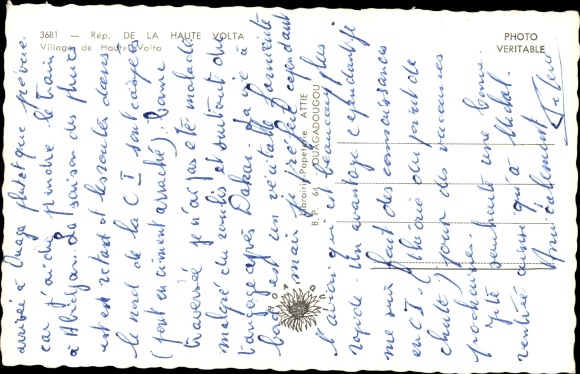 3681 - Rép. DE LA HAUTE VOLTA
Villages de Haute Volta
PHOTO
VERITABLE
Librairie-Papeterie ATTIE
B. P. 64 - OUAGADOUGOU
HOTO
arrivée à Ouaga plutôt que prévue
car j'ai dû prendre le train
à Abidjan. La saison des pluies
est en retard et les routes dans
le nord de la C I sont coupées
(pont en ciment arraché). Bonne
traversée je n'ai pas été malade
malgré du roulis et surtout du
tangage après Dakar. La vie à
bord est un véritable
mais je préfère cependant
l'avion qui est beaucoup plus
rapide. Un avantage cependant je
me suis fait des connaissances
en C.I. (
) pour des vacances
prochaines.
Je te souhaite une bonne
rentrée ainsi qu'à Michel.
Amicalement